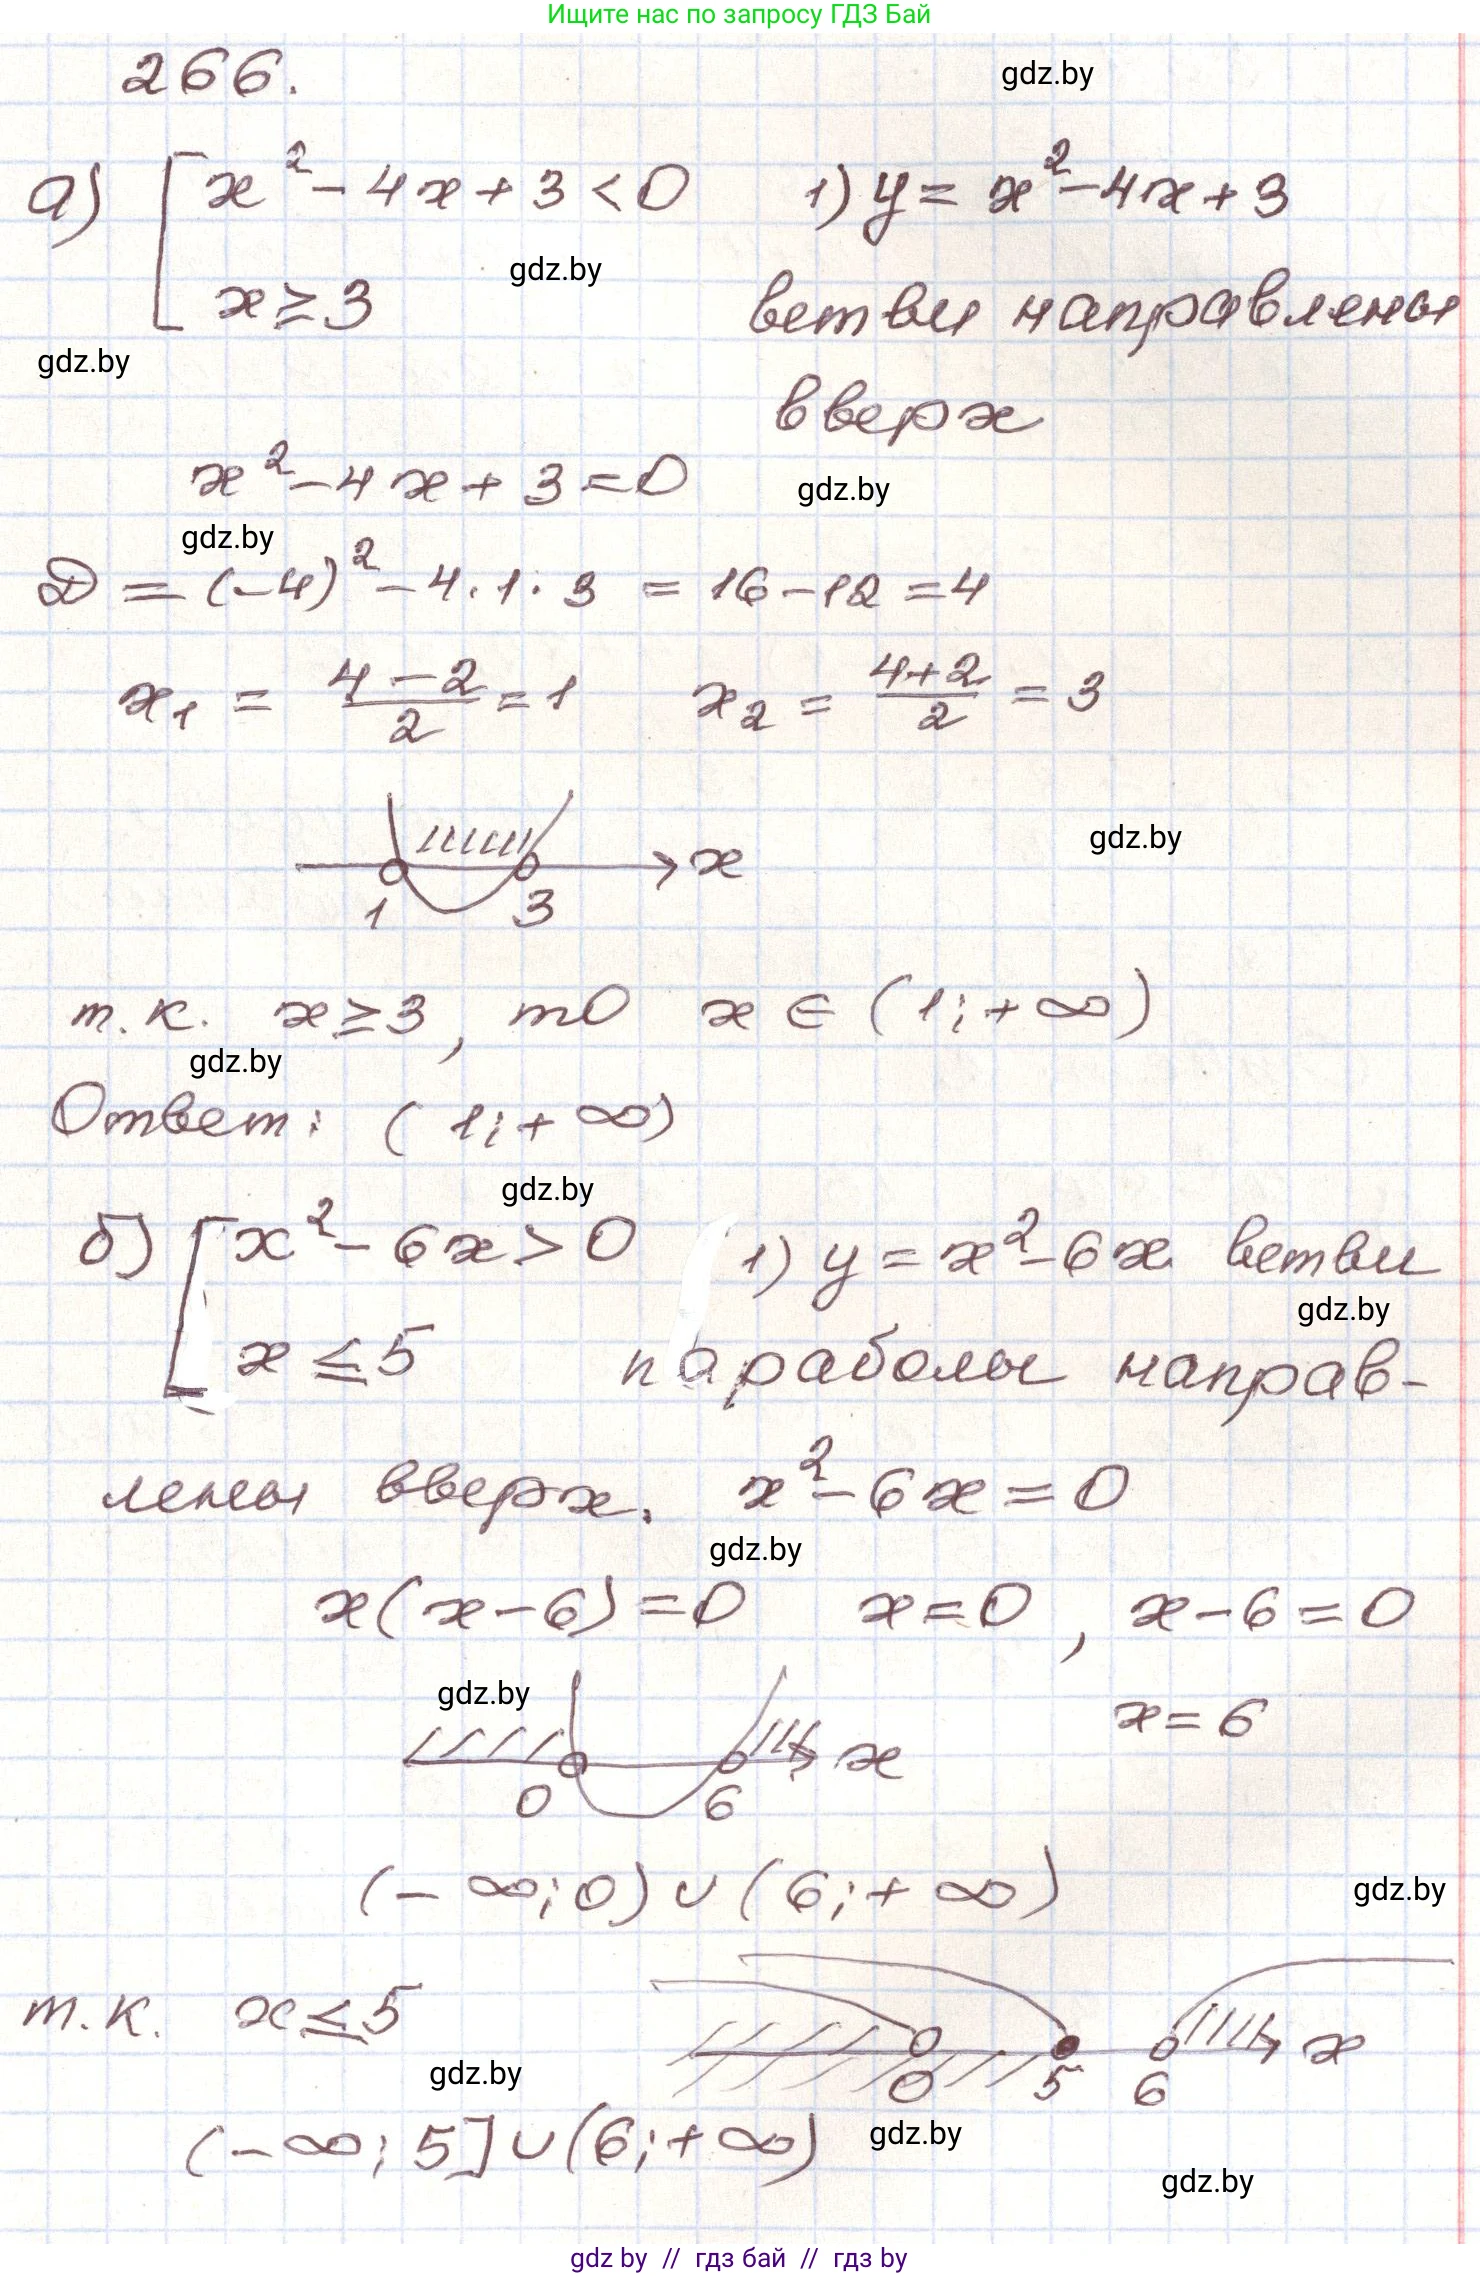 Ищите нас по запросу ГДЗ Бай
266.
gdz.by
а) [ x² - 4x + 3 < 0   1) y = x² - 4x + 3
gdz.by
x ≥ 3   ветви направлены
gdz.by
вверх
x² - 4x + 3 = 0
gdz.by
gdz.by
D = (-4)² - 4·1·3 = 16 - 12 = 4
x₁ = (4 - 2)/2 = 1   x₂ = (4+2)/2 = 3
gdz.by
x
1   3
т.к. x ≥ 3, то x ∈ (1; +∞)
gdz.by
Ответ: (1; +∞)
gdz.by
б) [ x² - 6x > 0   1) y = x² - 6x ветви
gdz.by
x ≤ 5   параболы направ-
лены вверх. x² - 6x = 0
gdz.by
x(x - 6) = 0   x = 0, x - 6 = 0
gdz.by
x = 6
x
0   6
(-∞; 0) ∪ (6; +∞)
gdz.by
т.к. x ≤ 5
x
gdz.by
0   5   6
(-∞; 5] ∪ (6; +∞)
gdz.by
gdz.by
gdz by // гдз бай // гдз by